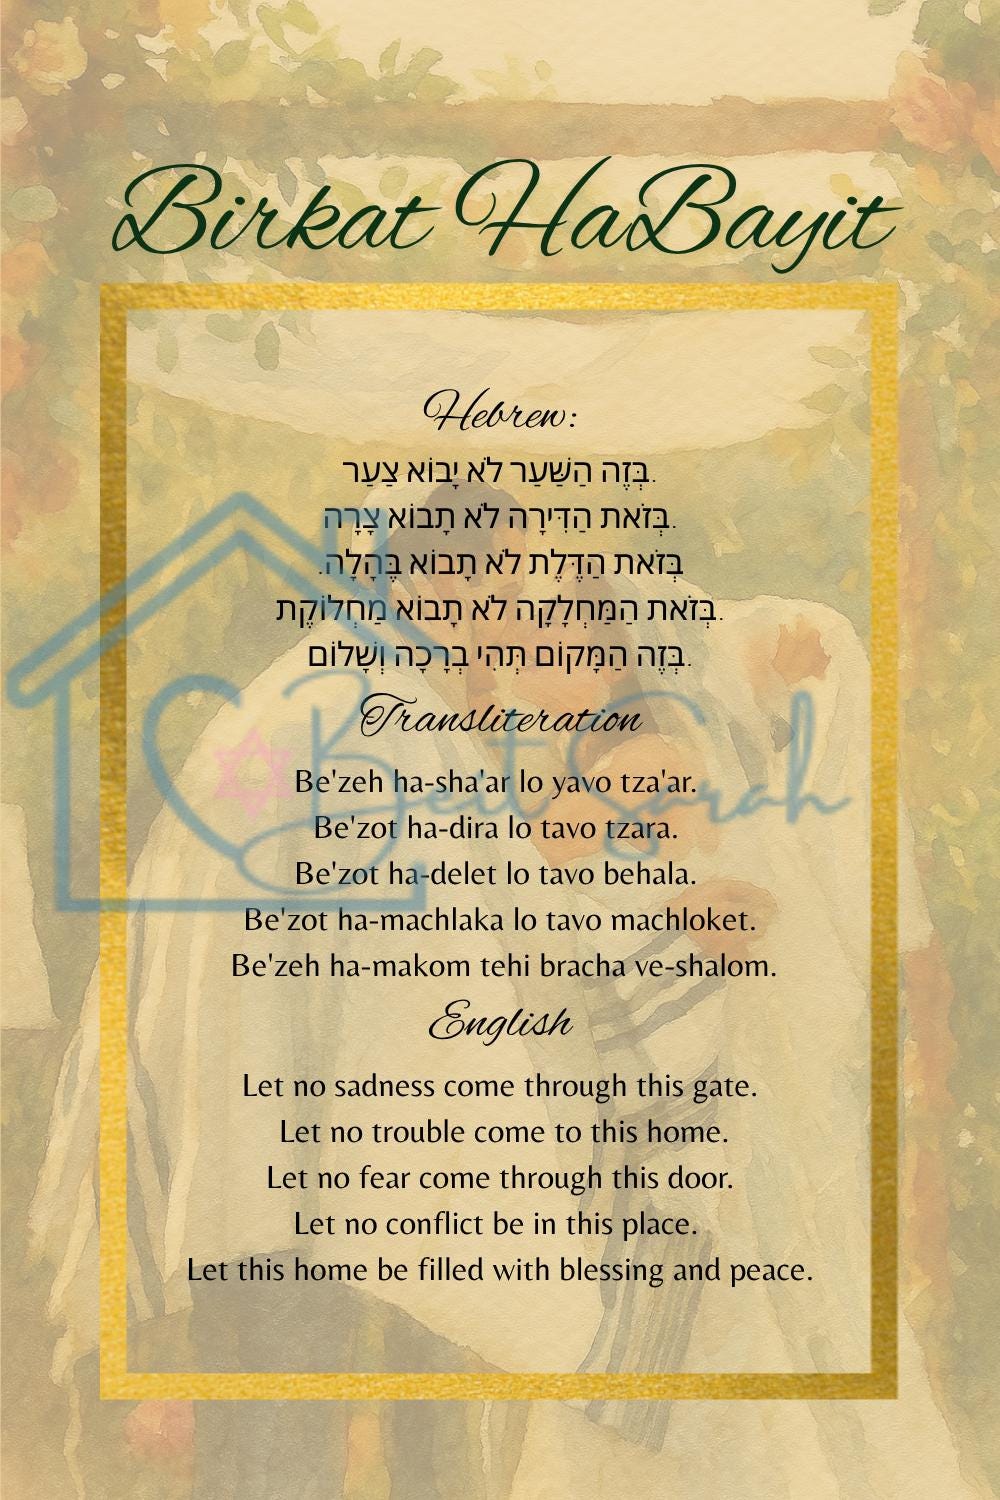 Birkat HaBayit
Hebrew:
בְּזֶה הַשַּׁעַר לֹא יָבוֹא צַעַר.
בְּזֹאת הַדִּירָה לֹא תָבוֹא צָרָה.
בְּזֹאת הַדֶּלֶת לֹא תָבוֹא בֶּהָלָה.
בְּזֹאת הַמַּחְלָקָה לֹא תָבוֹא מַחְלוֹקֶת.
בְּזֶה הַמָּקוֹם תְּהִי בְרָכָה וְשָׁלוֹם.
Transliteration
BeitSarah
Be'zeh ha-sha'ar lo yavo tza'ar.
Be'zot ha-dira lo tavo tzara.
Be'zot ha-delet lo tavo behala.
Be'zot ha-machlaka lo tavo machloket.
Be'zeh ha-makom tehi bracha ve-shalom.
English
Let no sadness come through this gate.
Let no trouble come to this home.
Let no fear come through this door.
Let no conflict be in this place.
Let this home be filled with blessing and peace.